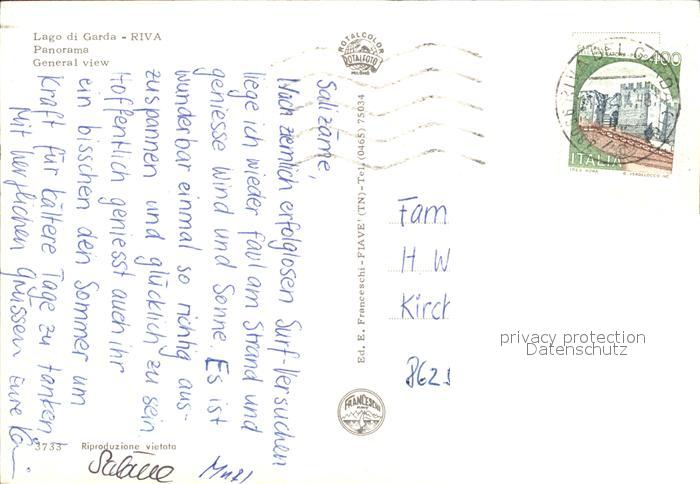 Lago di Garda - RIVA
Panorama
General view
ROTALCOLOR
ROTALFOTO
MILANO
400
ITALIA
Salizäme,
Nach ziemlich erfolglosen Surf-Versuchen
liege ich wieder faul am Strand und
geniesse Wind und Sonne. Es ist
wunderbar einmal so richtig aus-
zuspannen und glücklich zu sein.
Hoffentlich geniesst auch ihr
ein bisschen den Sommer um
Kraft für kältere Tage zu tanken!
Mit herzlichen Grüssen Eure
Ed. E. Franceschi - FIAVE' (TN) - Tel. (0465) 75034
Fam
H W
Kirch
862
privacy protection
Datenschutz
FRANCESCHI
3733 Riproduzione vietata